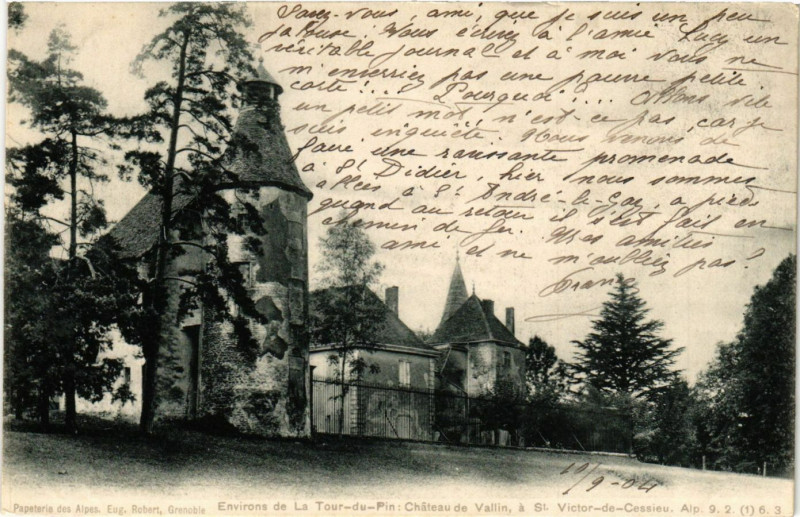 Savez-vous, ami, que je suis un peu
jalouse. Vous écrivez à l'amie Lucy un
véritable journal et à moi vous ne
m'enverriez pas une pauvre petite
carte!... Pourquoi?... Allons vite
un petit mot, n'est-ce pas, car je
suis inquiète. Nous venons de
faire une ravissante promenade
à St Didier, hier nous sommes
allées à St André-le-Gaz, à pieds
quand au retour il s'est fait en
chemin de fer. Mes amitiés
ami et ne m'oubliez pas?
19/9-04
Papeterie des Alpes. Eug. Robert, Grenoble Environs de La Tour-du-Pin: Château de Vallin, à St. Victor-de-Cessieu. Alp. 9. 2. (1) 6. 3